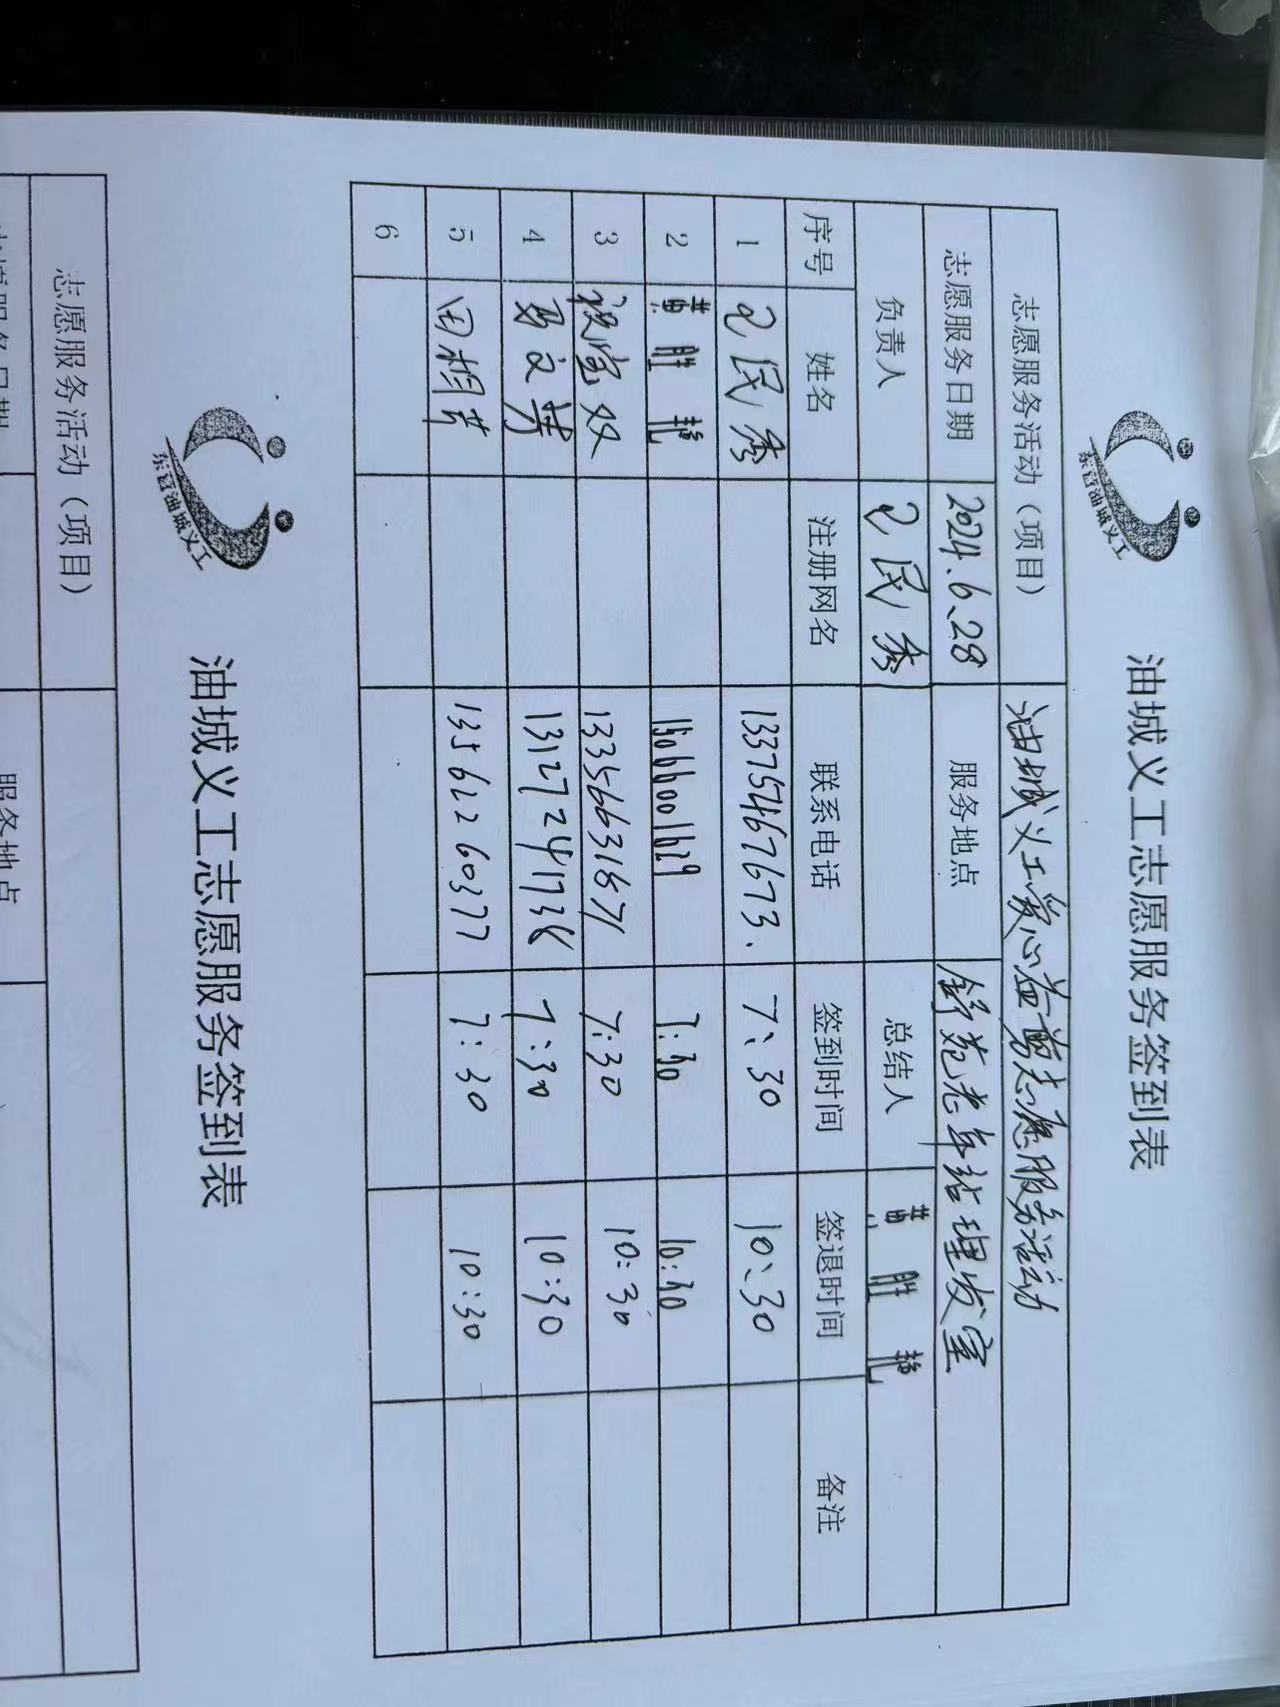 东营油城义工
油城义工志愿服务签到表
志愿服务活动（项目） 油城义工爱心益剪志愿服务活动
志愿服务日期 2024.6.28 服务地点 舒苑老年站理发室
负责人 民秀 总结人 黄胜艳
序号 姓名 注册网名 联系电话 签到时间 签退时间 备注
1 民秀 13375467673. 7:30 10:30
2 黄胜艳 15066001629 7:30 10:30
3 宝双 13356631871 7:30 10:30
4 文 13127241738 7:30 10:30
5 田相芳 13562260377 7:30 10:30
6
东营油城义工
油城义工志愿服务签到表
志愿服务活动（项目）
志愿服务日期 服务地点